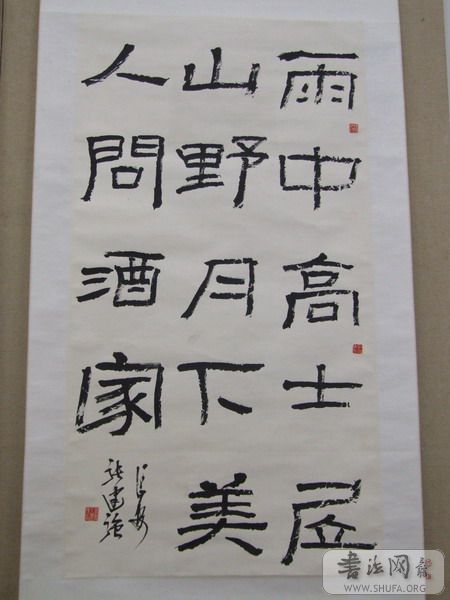 雨中高士居
山野月下美
人問酒家
長安
張建強
書法网
WWW.SHUFA.ORG